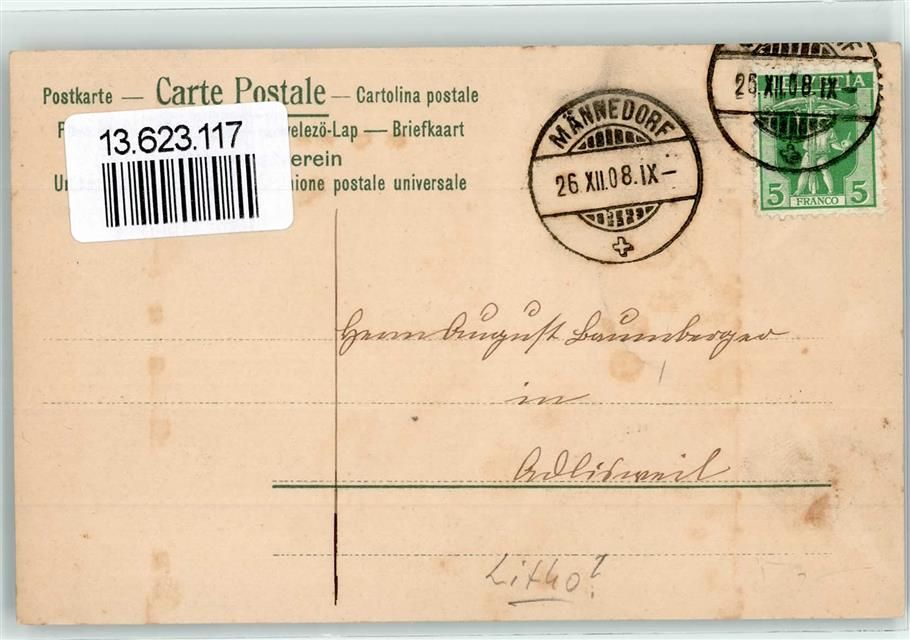 Postkarte — Carte Postale — Cartolina postale
13.623.117
velezö-Lap — Briefkaart
erein
ione postale universale
MÄNNEDORF
26.XII.08.IX–
26.XII.08.IX–
5 FRANCO 5
Herrn August Baumberger
in
Adlisweil
Litho?